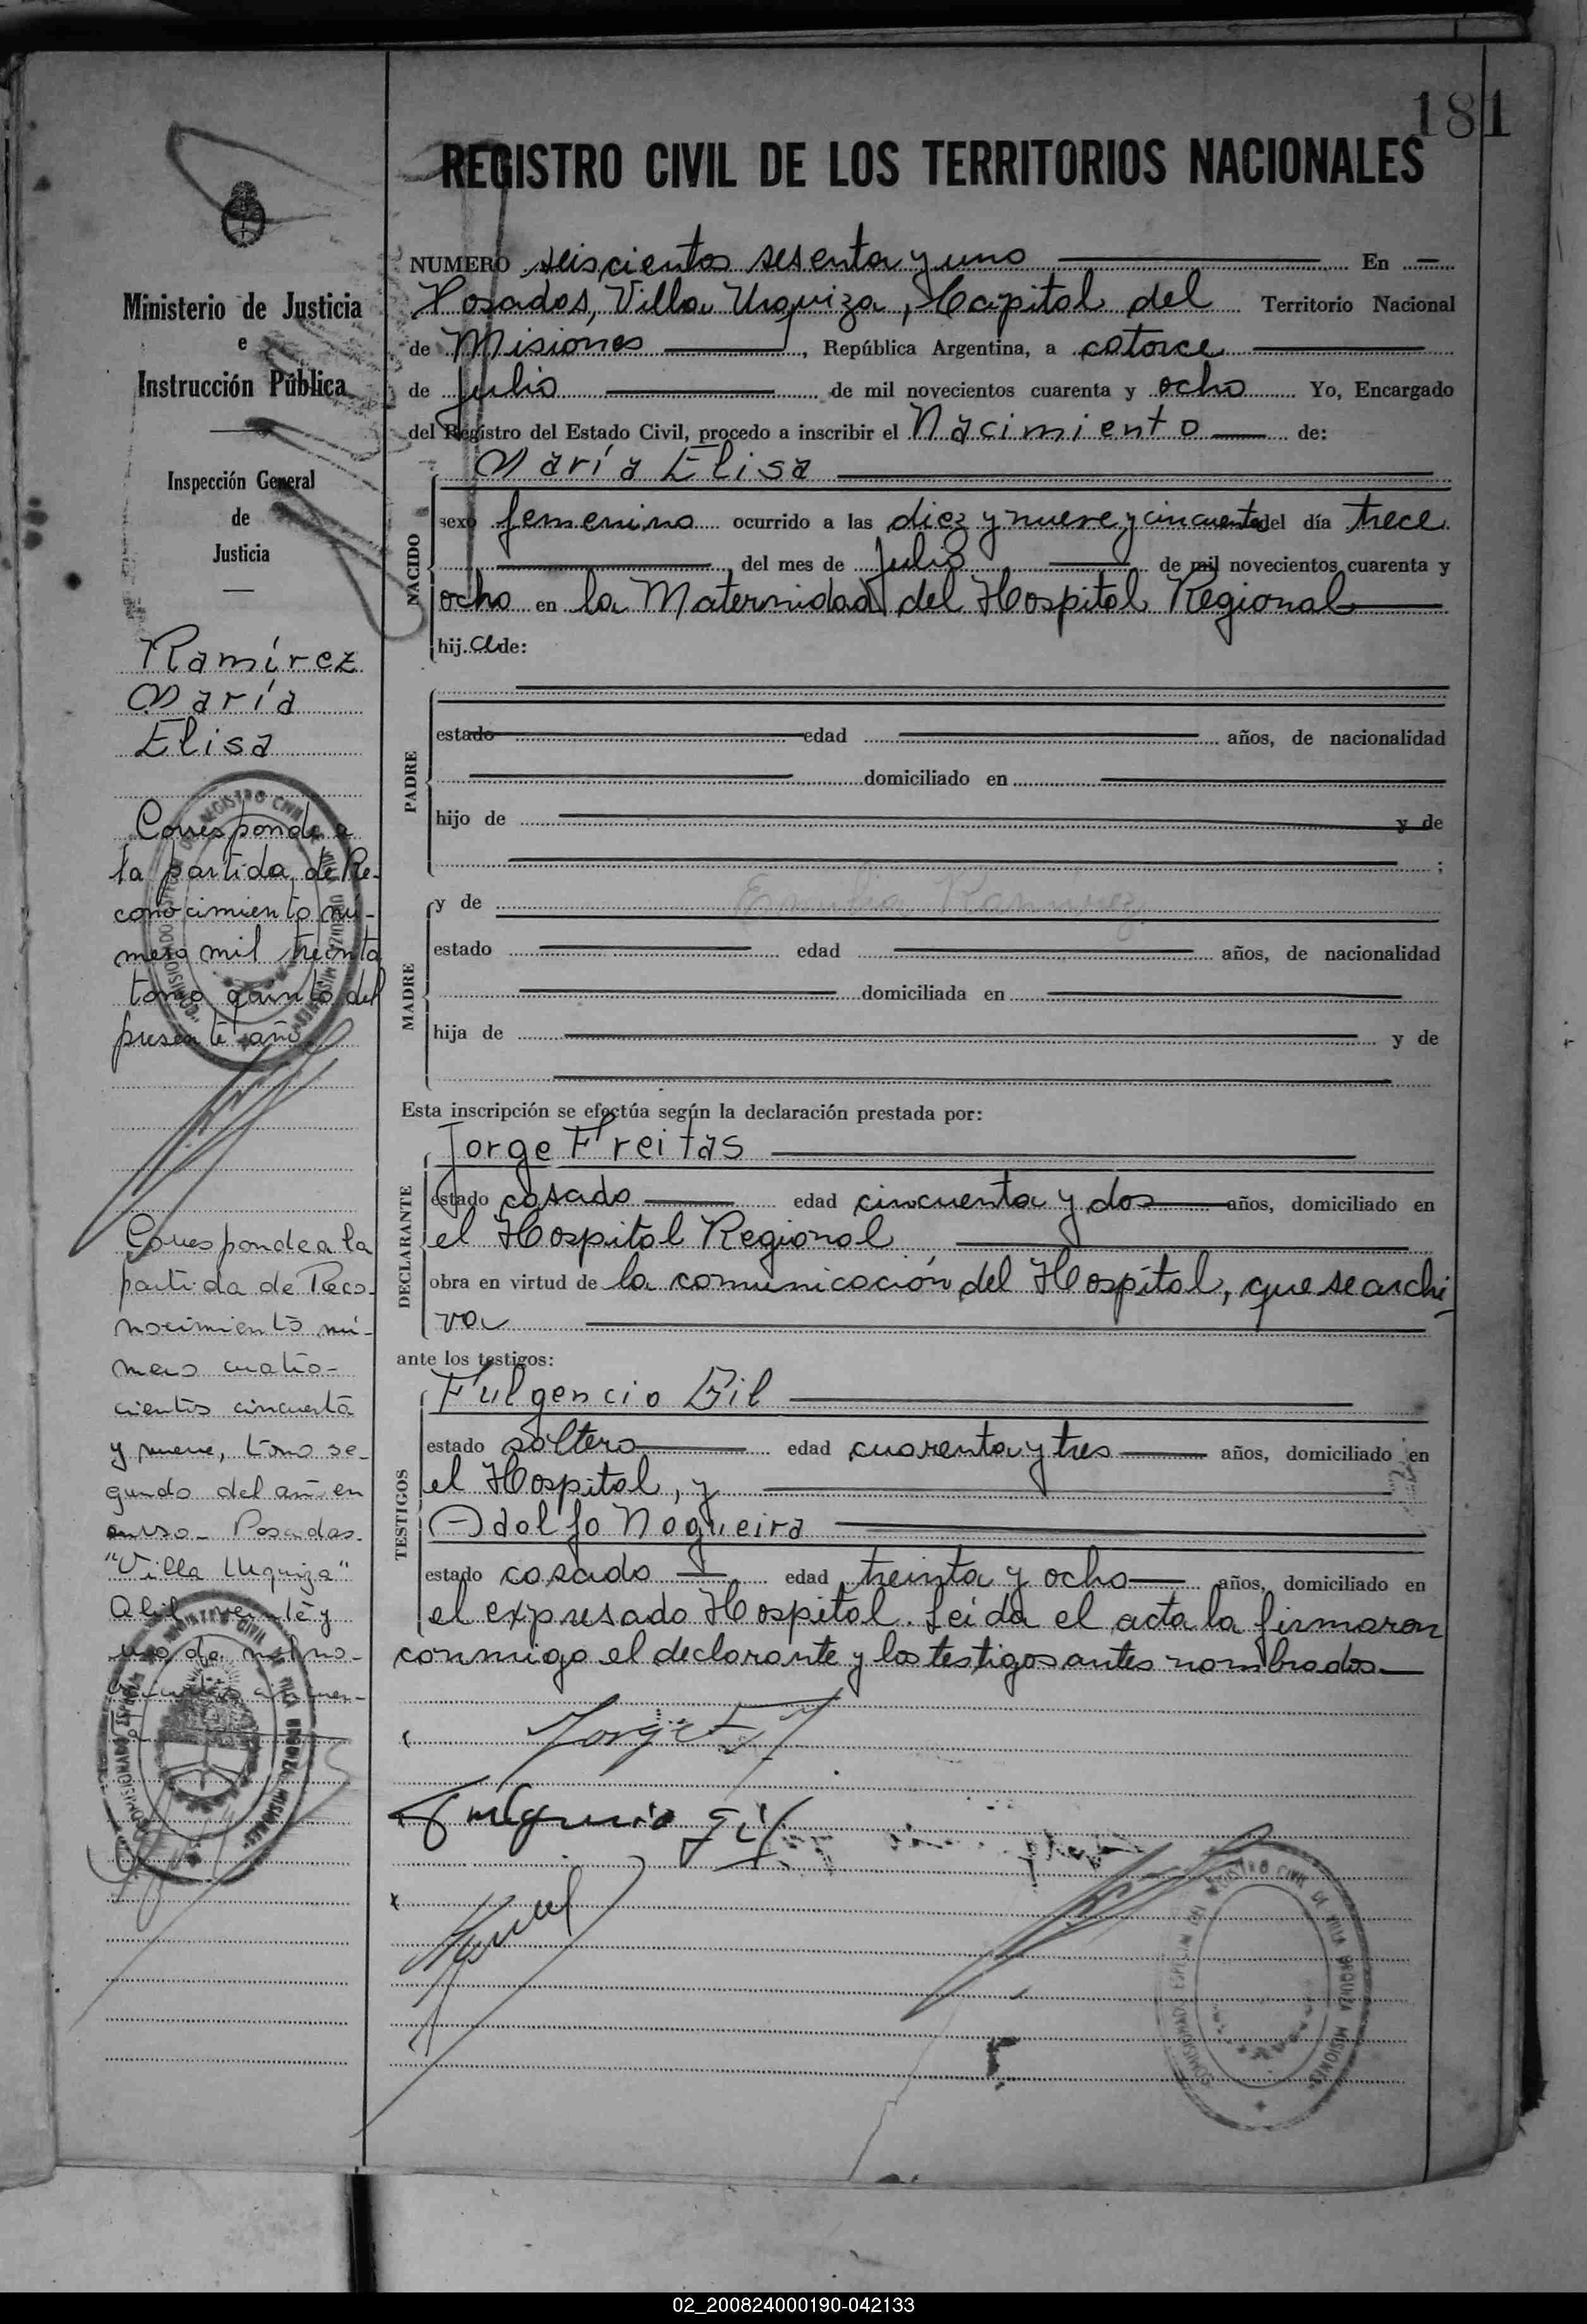 181
REGISTRO CIVIL DE LOS TERRITORIOS NACIONALES
Ministerio de Justicia
e
Instrucción Pública
Inspección General
de
Justicia
Ramírez
María
Elisa
Corresponde a
la partida de Re-
conocimiento nú-
mero mil treinta
tomo quinto del
presente año
Corresponde a la
partida de Reco-
nocimiento nú-
mero cuatro-
cientos cincuenta
y nueve, tomo se-
gundo del año en
curso. Posadas.
"Villa Urquiza"
Abril veinte y
uno de mil no-
NUMERO seiscientos sesenta y uno En
Posadas, Villa Urquiza, Capital del Territorio Nacional
de Misiones, República Argentina, a catorce
de Julio de mil novecientos cuarenta y ocho Yo, Encargado
del Registro del Estado Civil, procedo a inscribir el Nacimiento de:
María Elisa
NACIDO
sexo femenino ocurrido a las diez y nueve y cincuenta del día trece
del mes de Julio de mil novecientos cuarenta y
ocho en la Maternidad del Hospital Regional
hij.a de:
PADRE
estado edad años, de nacionalidad
domiciliado en
hijo de y de
;
MADRE
y de Emilia Ramirez
estado edad años, de nacionalidad
domiciliada en
hija de y de
Esta inscripción se efectúa según la declaración prestada por:
DECLARANTE
Jorge Freitas
estado casado edad cincuenta y dos años, domiciliado en
el Hospital Regional
obra en virtud de la comunicación del Hospital, que se archi-
va
ante los testigos:
TESTIGOS
Fulgencio Gil
estado soltero edad cuarenta y tres años, domiciliado en
el Hospital, y
Adolfo Nogueira
estado casado edad treinta y ocho años, domiciliado en
el expresado Hospital. Leída el acta la firmaron
conmigo el declarante y los testigos antes nombrados.
Jorge F
Fulgencio Gil
REGISTRO CIVIL DE VILLA URQUIZA MISIONES
02_200824000190-042133